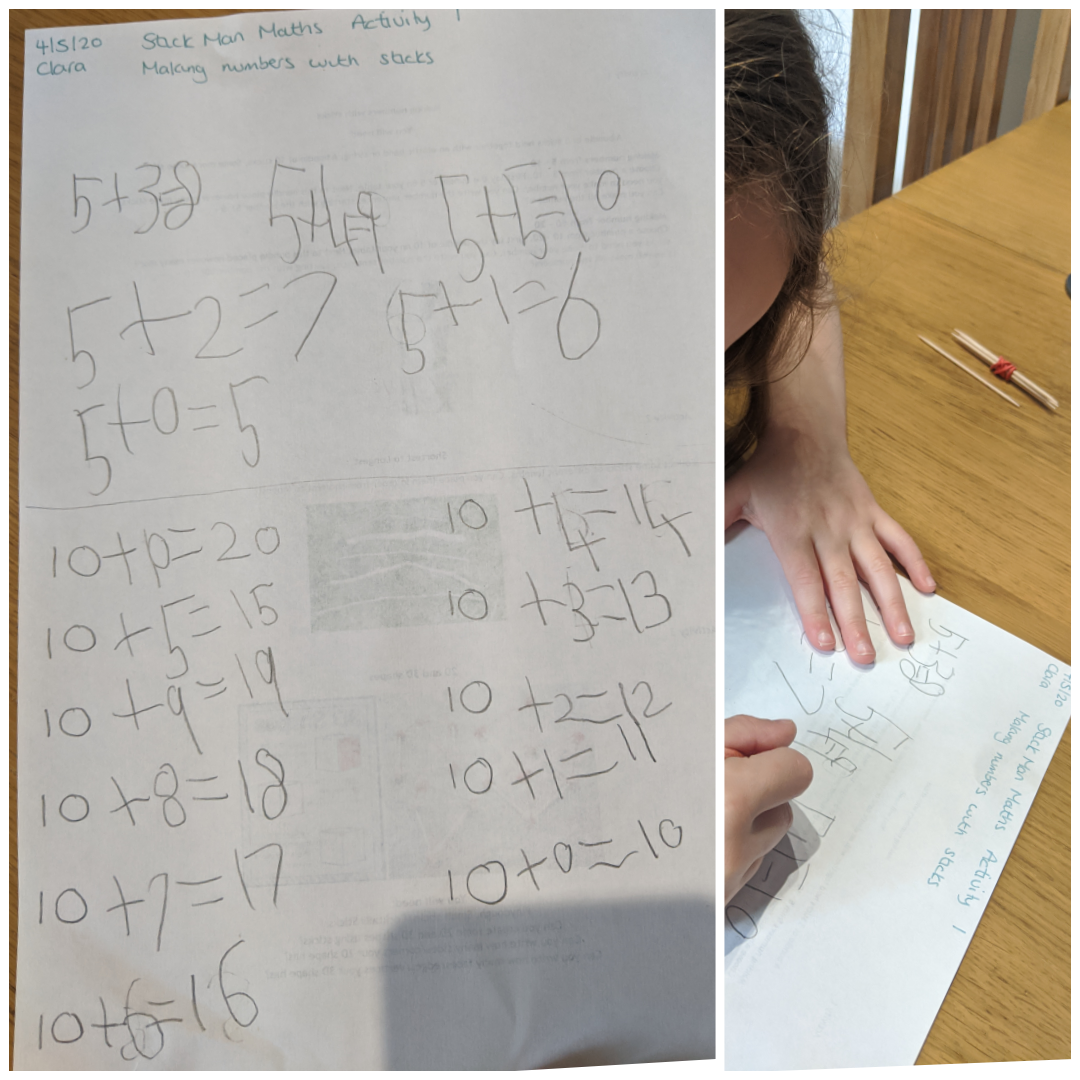 4/5/20 Stick Man Maths Activity 1
Clara Making numbers with sticks
5+3=8 5+4=9 5+5=10
5+2=7 5+1=6
5+0=5
10+10=20
10+5=15
10+9=19
10+8=18
10+7=17
10+6=16
10+4=14
10+3=13
10+2=12
10+1=11
10+0=10
4/5/20 Stick Man Maths Activity 1
Clara Making numbers with sticks
5+3=8 5+4=9 5+5=10
=7